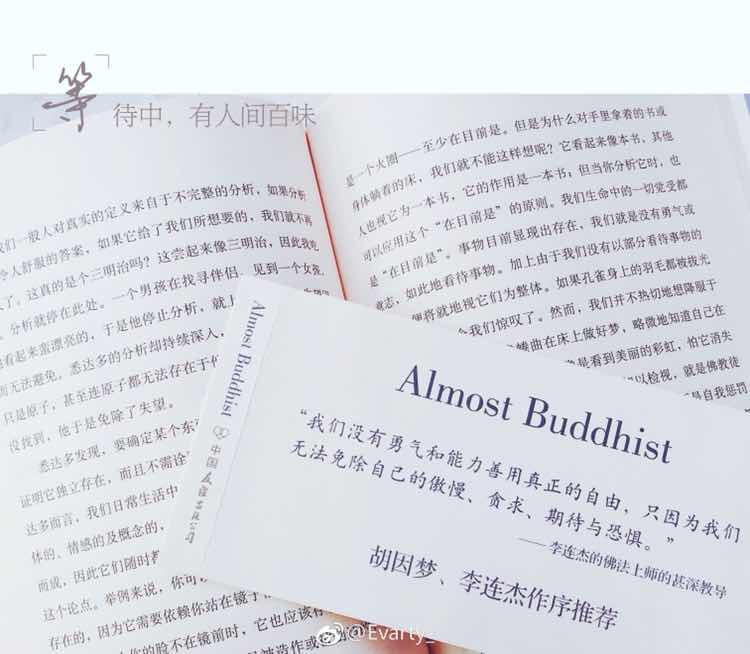 等
待中，有人间百味
我们一般人对真实的定义来自于不完整的分析，如果分析
令人舒服的答案，如果它给了我们所想要的，我们就不再
了。这真的是个三明治吗？这尝起来像三明治，因此我吃
分析就停在此处。一个男孩在找寻伴侣，见到一个女孩，
看起来蛮漂亮的，于是他停止分析，就上
而无法避免。悉达多的分析却持续深入，
只是原子，甚至连原子都无法存在于
没找到，他于是免除了失望。
悉达多发现，要确定某个东
证明它独立存在，而且不需诠
达多而言，我们日常生活中
体的、情感的及概念的，
而成，因此它们随时都
这个论点。举例来说，你可
存在的，因为它需要依赖你站在镜子
你的脸不在镜前时，它也应该
是一个火圈——至少在目前是。但是为什么对手里拿着的书或
身体躺着的床，我们就不能这样想呢？它看起来像本书，其他
人也视它为一本书，它的作用是一本书；但当你分析它时，也
可以应用这个“在目前是”的原则。我们生命中的一切觉受都
是“在目前是”。事物目前显现出存在，我们就是没有勇气或
意志，如此地看待事物。加上由于我们没有以部分看待事物的
便将就地视它们为整体。如果孔雀身上的羽毛都被拔光
会我们惊叹了。然而，我们并不热切地想降服于
蜷曲在床上做好梦，略微地知道自己在
是看到美丽的彩虹，怕它消失
以检视，就是佛教徒
是自我惩罚
Almost Buddhist
中国友谊出版公司
Almost Buddhist
“我们没有勇气和能力善用真正的自由，只因为我们
无法免除自己的傲慢、贪求、期待与恐惧。”
——李连杰的佛法上师的甚深教导
胡因梦、李连杰作序推荐
@Evarty_